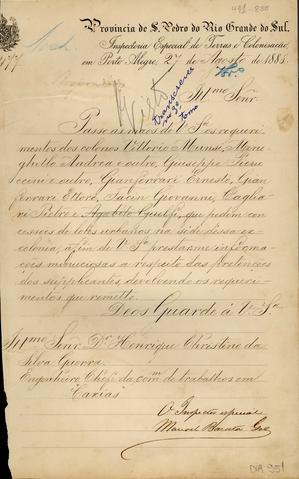 491-838
Provincia de S. Pedro do Rio Grande do Sul,
Inspectoria Especial de Terras e Colonisação
em Porto Alegre, 27 de Agosto de 1885.
Illmo Senr.
Transcreva
Passo as mãos de V. Sa os requeri-
mentos dos colonos Vittorio Munsi, More
ghello Andrea e outro, Giuseppe Pieru
ccini e outro, Gianferrari Ernesto, Gian
ferrari Ettore, Facin Giovanni, Caglia
ri Pietro e Agobito Guelfi, que pedem con
cessões de lotes urbanos na séde dessa ex
colonia, afim de V. Sa prestar-me informa
ções minuciosas a respeito das pretenções
dos supplicantes, devolvendo os requeri
mentos que remetto.
Deos Guarde á V. Sa
Illmo Senr. Dr. Henrique Christino da
Silva Guerra.
Engenheiro Chefe da comm. de trabalhos em
"Caxias"
O Inspector especial
Manoel Barata Góes
DIA 951